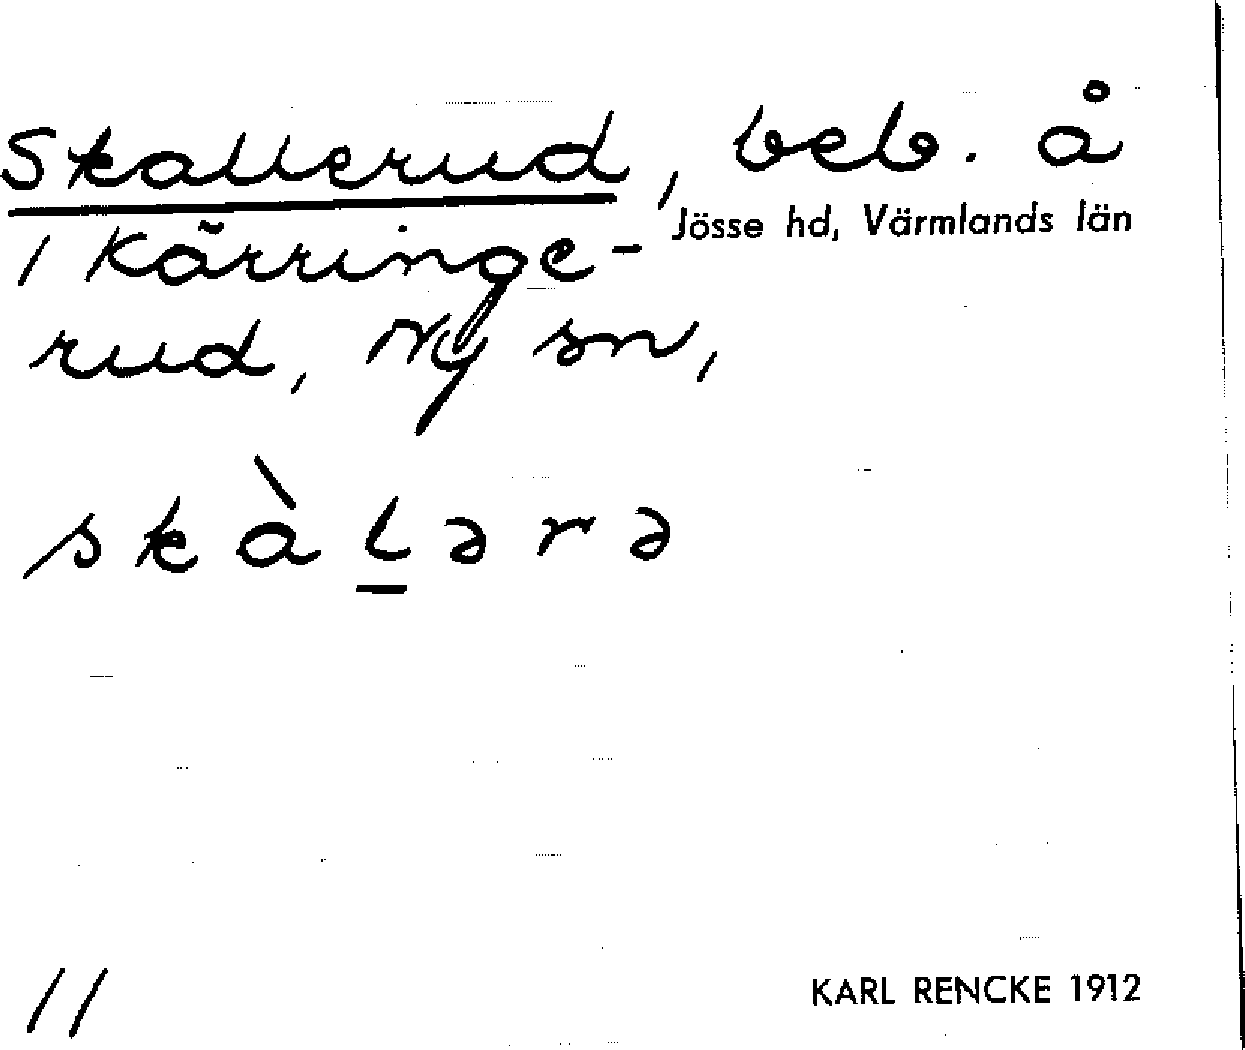 Skallerud, beb. å
Jösse hd, Värmlands län
1 Kärringe-
rud, Ny sn,
skàlərə
11
KARL RENCKE 1912